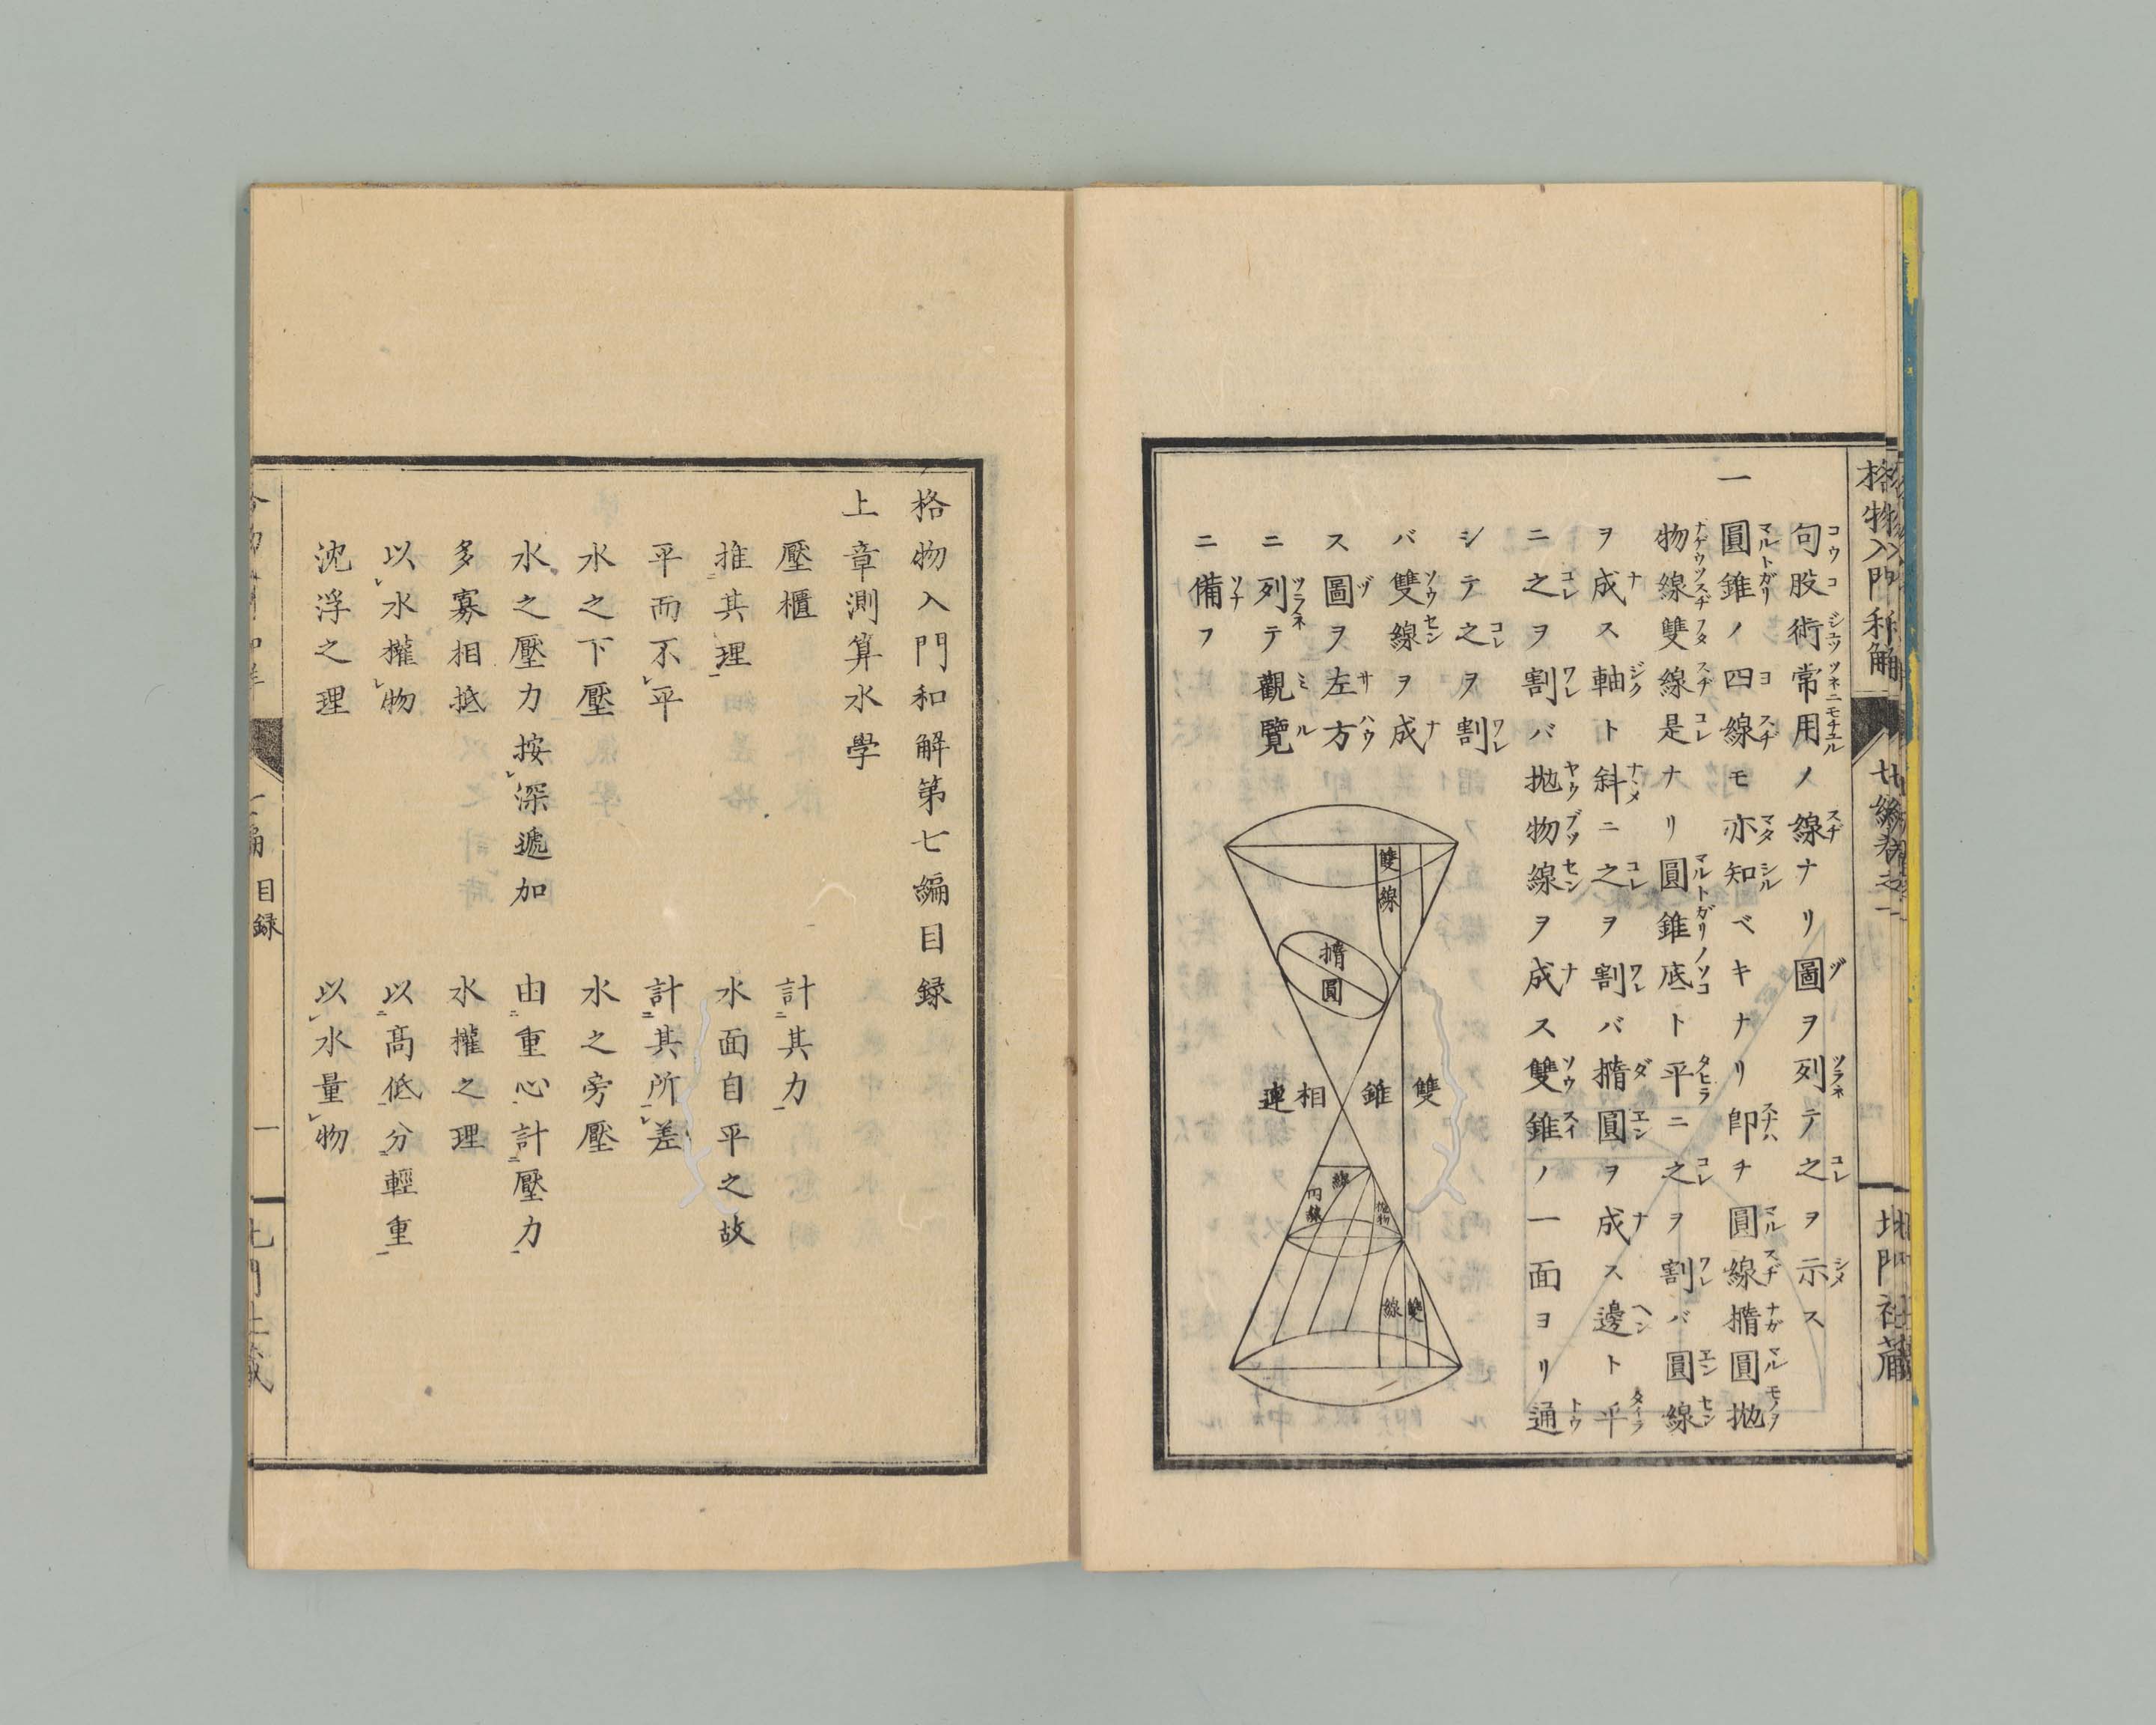 句股術常用ノ線ナリ圖ヲ列テ之ヲ示ス
一圓錐ノ四線モ亦知ベキナリ即チ圓線撱圓拋
物線雙線是ナリ圓錐底ト平ニ之ヲ割バ圓線
ヲ成ス軸ト斜ニ之ヲ割バ撱圓ヲ成ス邊ト平
ニ之ヲ割バ拋物線ヲ成ス雙錐ノ一面ヨリ通
シテ之ヲ割
バ雙線ヲ成
ス圖ヲ左方
ニ列テ觀覽
ニ備フ
雙線
撱圓
雙錐相連
線
円線
拋物
雙線
格物入門和解
北門社蔵
格物入門和解第七編目録
上章測算水學
壓櫃
計其力
推其理
水面自平之故
平而不平
計其所差
水之下壓
水之旁壓
水之壓力按深遞加
由重心計壓力
多寡相抵
水權之理
以水權物
以高低分輕重
沈浮之理
以水量物
目録
一